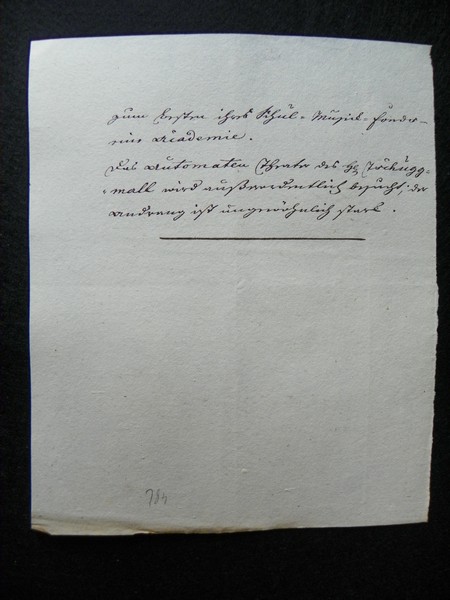 zum besten ihres Schul-Musick-Fondes
eine Academie.
Das Automaten Theater des H: Tschugg-
-mall wird außerordentlich besucht, der
Andrang ist ungewöhnlich stark.